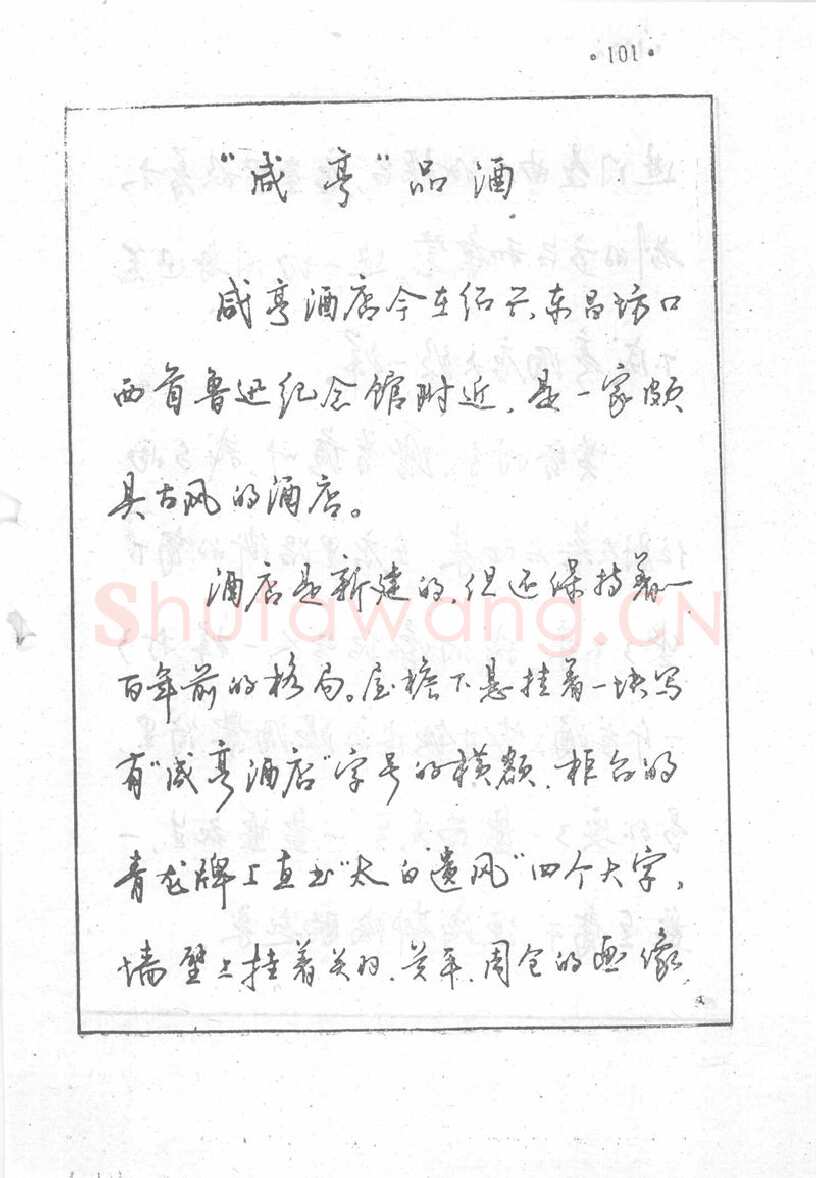 ·101·
"咸亨"品酒
咸亨酒店今在绍兴东昌坊口
西首鲁迅纪念馆附近,是一家颇
具古风的酒店。
酒店是新建的,但还保持着一
Shufawang.CN
百年前的格局。屋檐下悬挂着一块写
有"咸亨酒店"字号的横额,柜台的
青龙牌上直书"太白遗风"四个大字,
墙壁上挂着关羽、关平、周仓的画像,